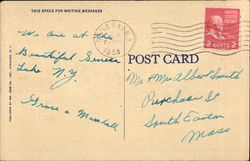 THIS SPACE FOR WRITING MESSAGES
1954
2 CENTS 2
POST CARD
We are at the
Beautiful Seneca
Lake N.Y.
Grace & Marshall
Mr & Mrs Albert Smith
Purchase St
South Easton
Mass